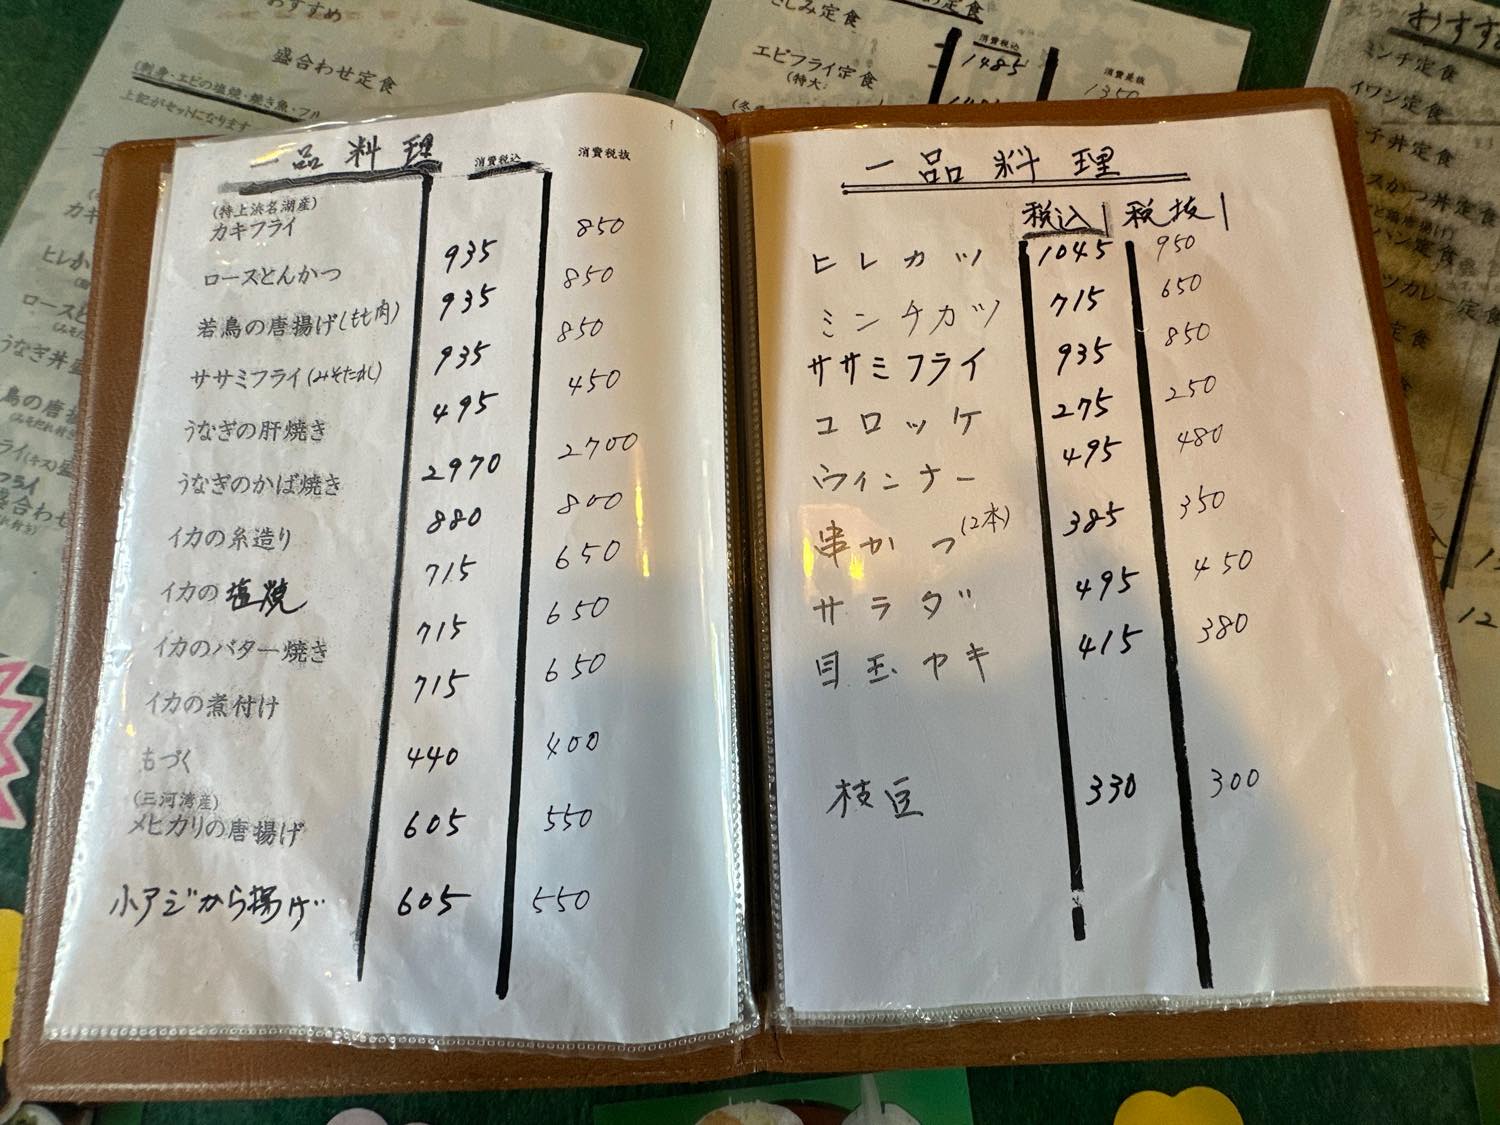 おすすめ
盛合わせ定食
(刺身・エビの塩焼・焼き魚・フル
上記がセットになります
さしみ定食
エビフライ定食 1485 1350
(特大)
消費税込
消費税抜
おすす
ミンチ定食
イワシ定食
子丼定食
スかつ丼定食
ツカレー定食
一品料理 消費税込 消費税抜
(特上浜名湖産)
カキフライ
ロースとんかつ 935 850
若鳥の唐揚げ(もも肉) 935 850
ササミフライ(みそたれ) 935 850
うなぎの肝焼き 495 450
うなぎのかば焼き 2970 2700
イカの糸造り 880 800
イカの塩焼 715 650
イカのバター焼き 715 650
イカの煮付け 715 650
もづく 440 400
(三河湾産)
メヒカリの唐揚げ 605 550
小アジから揚げ 605 550
一品料理
税込 税抜
ヒレカツ 1045 950
ミンチカツ 715 650
ササミフライ 935 850
コロッケ 275 250
ウィンナー 495 480
串かつ(2本) 385 350
サラダ 495 450
目玉ヤキ 415 380
枝豆 330 300